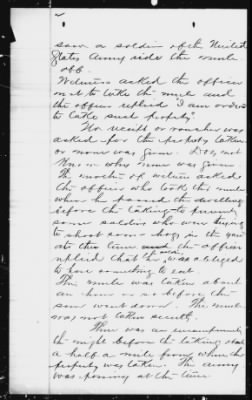 2
saw a soldier of the United
States Army ride the mule
off.
Witness asked the officer
not to take the mule and
the officer replied "I am ordered
to take such property"
No receipt or voucher was
asked for the property taken
or none was given. I do not
know why none was given
The mother of witness asked
the officer who took the mule
when he passed the dwelling
before the taking to prevent
some soldiers who were trying
to shoot some hogs in the yard
at this time the officer
replied that the soldiers obliged
to have something to eat.
The mule was taken about
an hour or so before the
sun went down. The mule
was not taken secretly.
There was an encampment
the night before the taking about
a half a mile from where the
property was taken. The army
was passing at the time